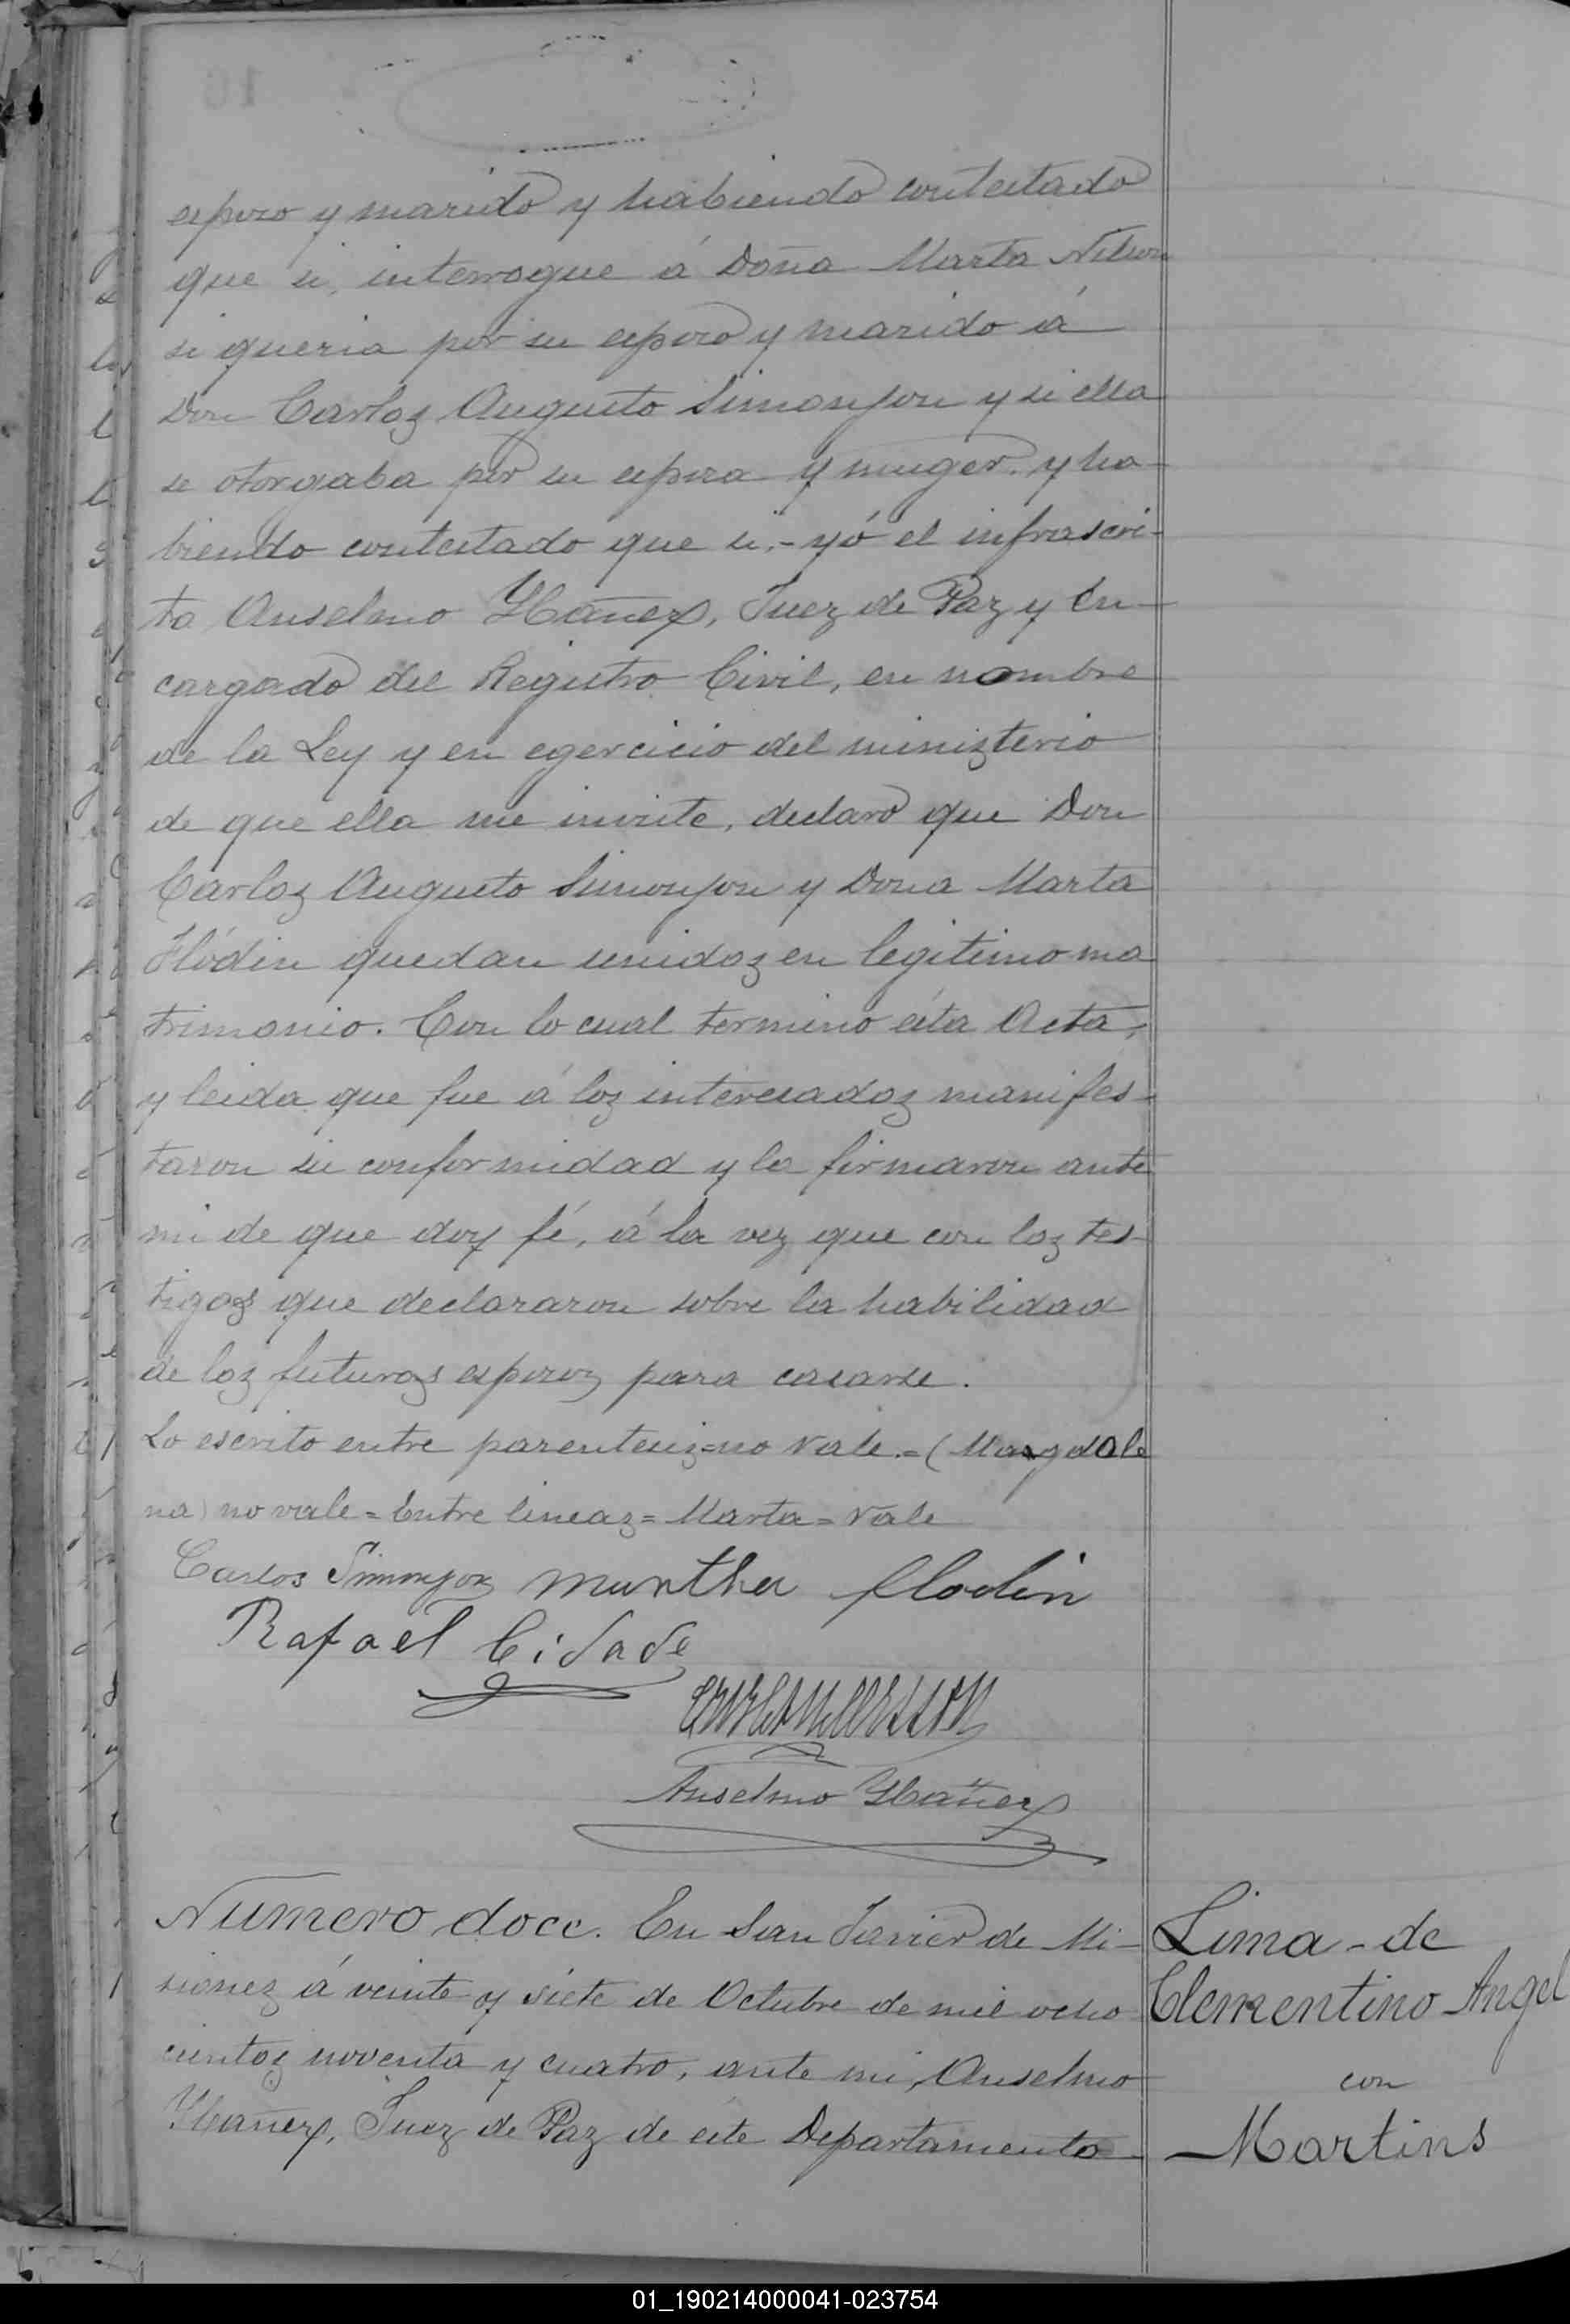 esposo y marido y habiendo contestado
que si, interrogue á Doña Marta Nilson
si queria por su esposo y marido á
Don Carloz Augusto Simonson y si ella
se otorgaba por su esposa y muger. y ha-
biendo contestado que si.- yó el infrascri-
to Anselmo Ybañez, Juez de Paz y En-
cargado del Registro Civil, en nombre
de la Ley y en egercicio del minizterio
de que ella me inviste, declaro que Don
Carloz Augusto Simonson y Dona Marta
Flódin quedan unidoz en legitimo ma
trimonio. Con lo cual termino ésta Acta,
y leida que fue á loz interesadoz manifes-
taron su conformidad y la firmaron ante
mi de que doy fé, á la vez que con loz tes-
tigos que declararon sobre la habilidad
de loz futuros esposoz para casarse.
Lo escrito entre parentesiz=no vale.=(Magdale
na) no vale=Entre lineaz=Marta=vale
Carlos Simonson Martha flodin
Rafael Cidade
Anselmo Ybañez
Número doce. En San Javier de Mi-
sionez á veinte y siete de Octubre de mil ocho
cientoz noventa y cuatro, ante mi, Anselmo
Ybañez, Juez de Paz de éste Departamento
Lima-de
Clementino Angel
con
Martins
01_190214000041-023754